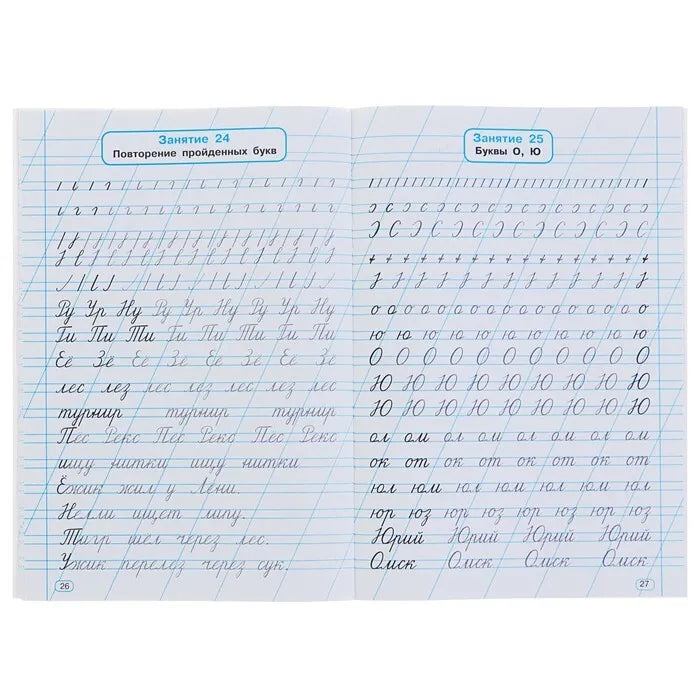 Занятие 24
Повторение пройденных букв
Ру Ур Ну Ру Ур Ну Ру Ур Ну
Ги Пи Ти Ги Пи Ти Ги Пи
Ее Зе Ее Зе Ее Зе Ее Зе
лес лез лес лез лес лез лес
турнир турнир турнир
Пес Рекс Пес Рекс Пес Рекс
ищу нитки ищу нитки
Ежик жил у Лены.
Нелли ищет липу.
Тигр шел через лес.
Ужик перелез через сук.
26
Занятие 25
Буквы О, Ю
о о о о о о о о о о о о о о о
ю ю ю ю ю ю ю ю ю ю ю
О О О О О О О О О О О
Ю Ю Ю Ю Ю Ю Ю Ю Ю
Ю Ю Ю Ю Ю Ю Ю Ю Ю
ол ом ол ом ол ом ол ом
ок от ок от ок от ок от
юл юм юл юм юл юм юл
юр юз юр юз юр юз юр юз
Юрий Юрий Юрий Юрий
Омск Омск Омск Омск
27